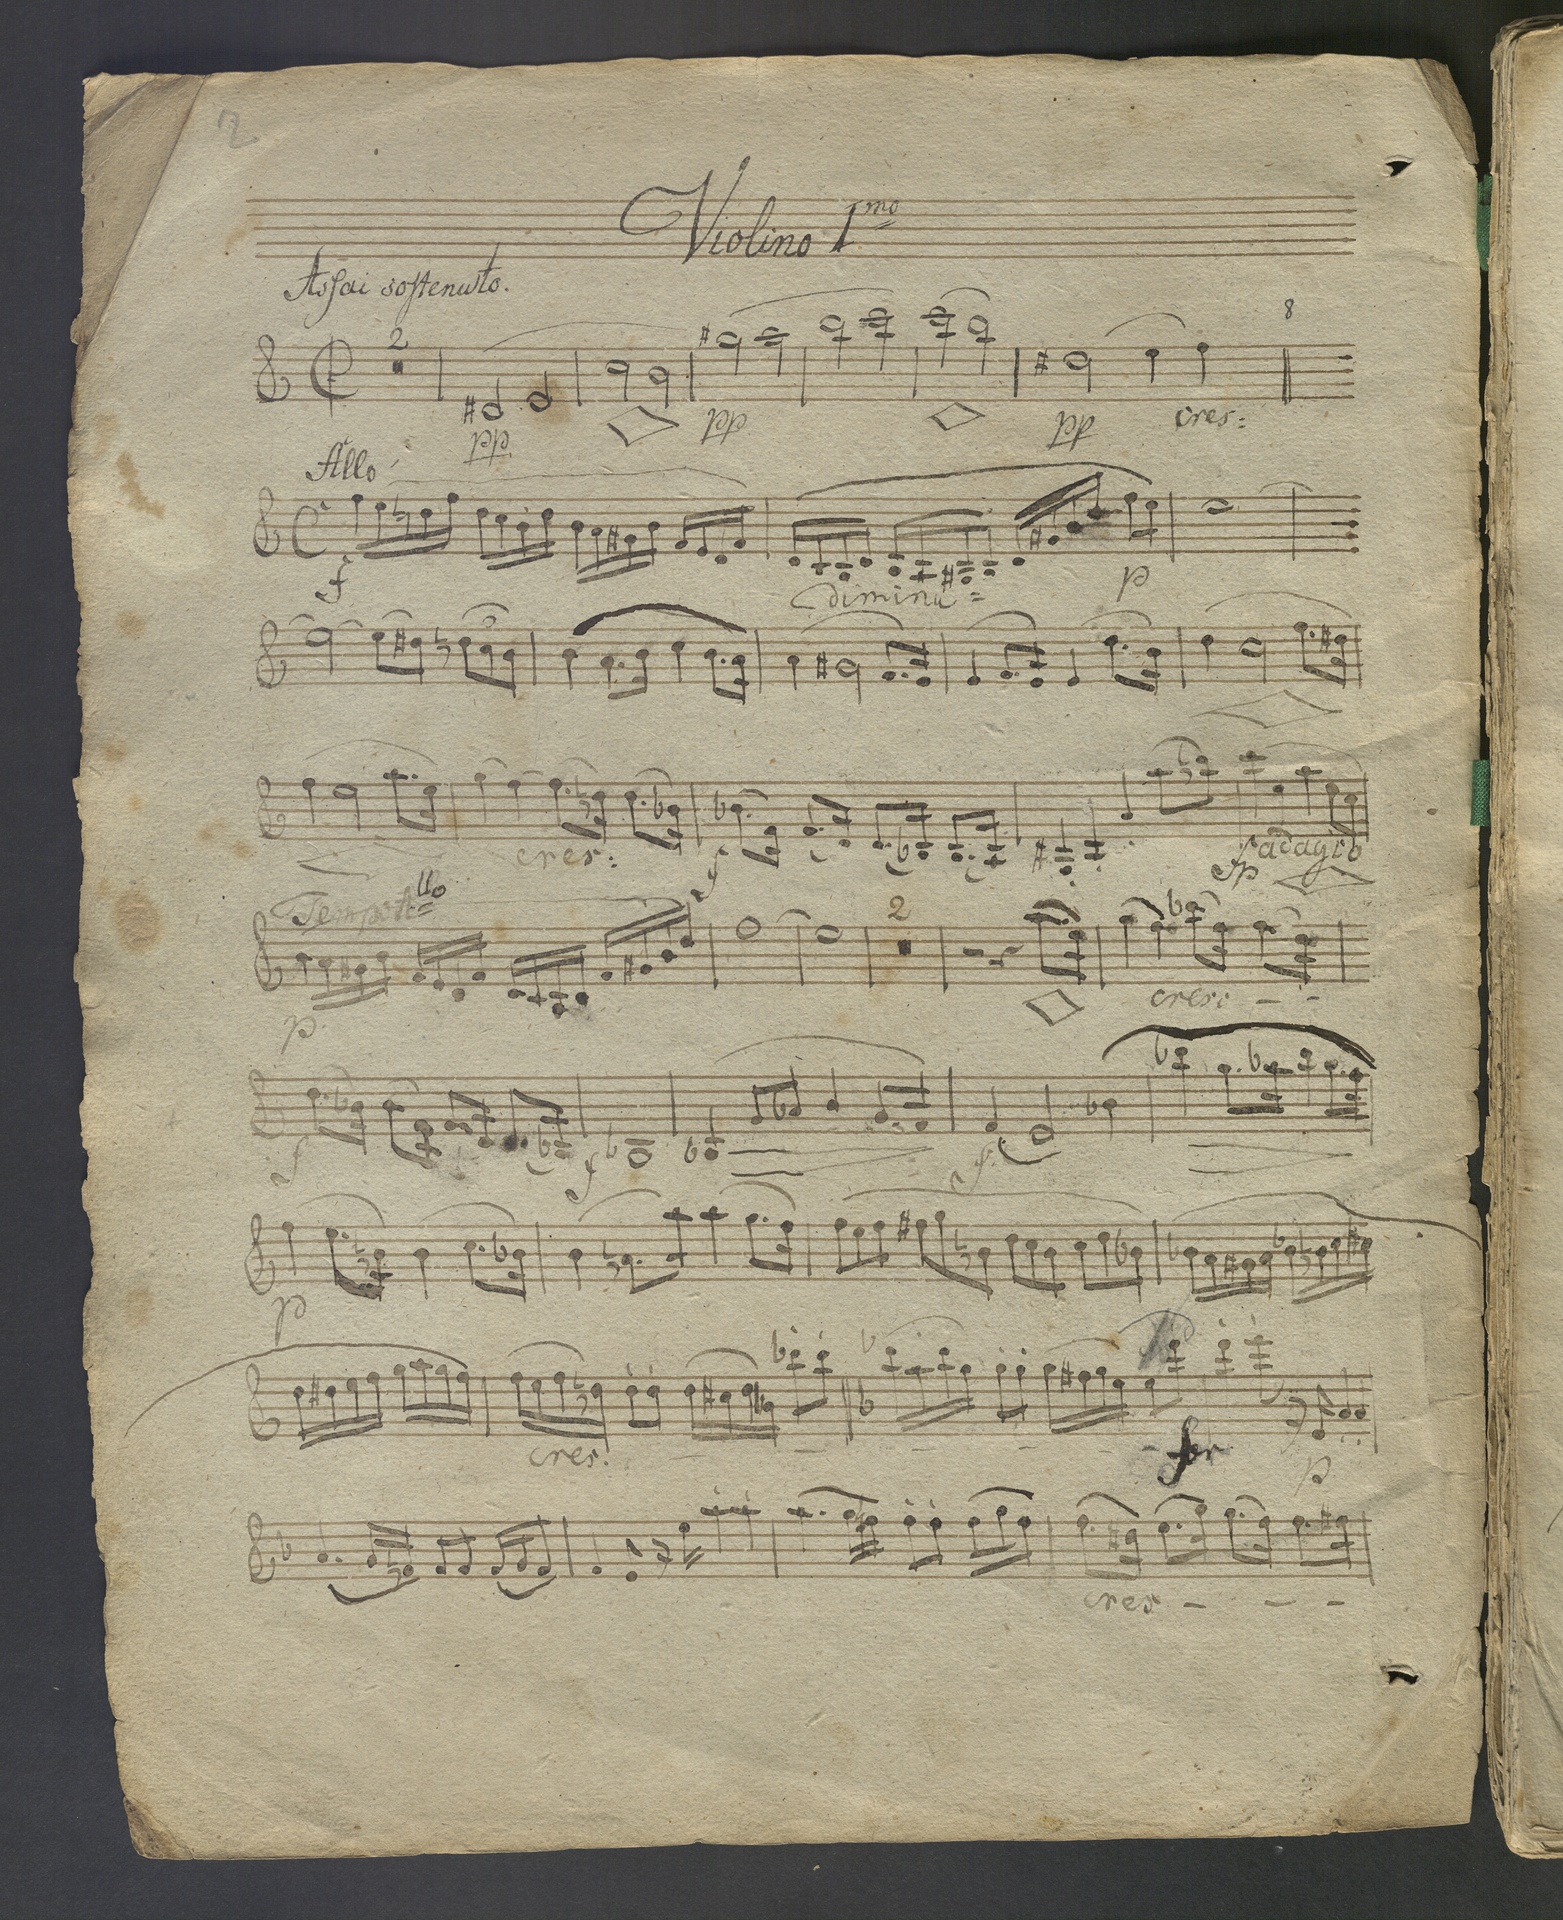 2
Violino 1mo
Assai sostenuto.
2
8
pp pp pp cres:
Allo
f diminu = p
3
cres: f fp adagio
Tempo Allo
2
p. cres: - -
f f f
p
cres. - - - - - for p
cres - - -